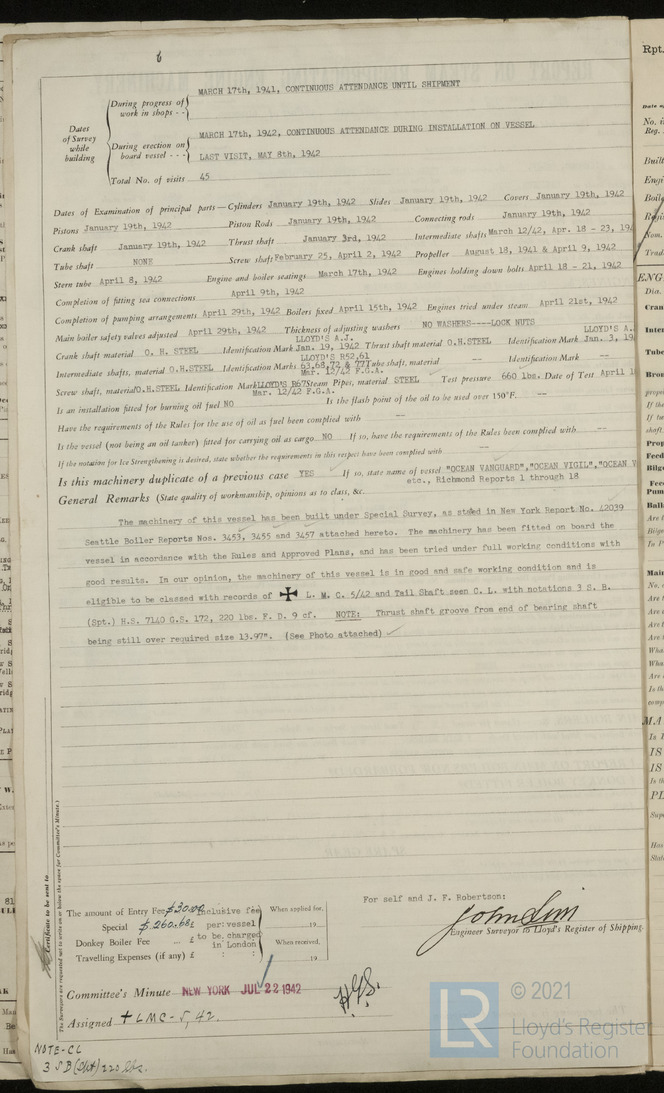 6
During progress of work in shops - - MARCH 17th, 1941, CONTINUOUS ATTENDANCE UNTIL SHIPMENT
Dates of Survey while building
During erection on board vessel - - - MARCH 17th, 1942, CONTINUOUS ATTENDANCE DURING INSTALLATION ON VESSEL
LAST VISIT, MAY 8th, 1942
Total No. of visits 45
Dates of Examination of principal parts—Cylinders January 19th, 1942 Slides January 19th, 1942 Covers January 19th, 1942
Pistons January 19th, 1942 Piston Rods January 19th, 1942 Connecting rods January 19th, 1942
Crank shaft January 19th, 1942 Thrust shaft January 3rd, 1942 Intermediate shafts March 12/42, Apr. 18 - 23, 194
Tube shaft NONE Screw shaft February 25, April 2, 1942 Propeller August 18, 1941 & April 9, 1942
Stern tube April 8, 1942 Engine and boiler seatings March 17th, 1942 Engines holding down bolts April 18 - 21, 1942
Completion of fitting sea connections April 9th, 1942
Completion of pumping arrangements April 29th, 1942 Boilers fixed April 15th, 1942 Engines tried under steam April 21st, 1942
Main boiler safety valves adjusted April 29th, 1942 Thickness of adjusting washers NO WASHERS----LOCK NUTS
Crank shaft material O. H. STEEL Identification Mark LLOYD'S A.J. Jan. 19, 1942 Thrust shaft material O.H.STEEL Identification Mark LLOYD'S A. Jan. 3, 19
Intermediate shafts, material O.H.STEEL Identification Marks LLOYD'S R52,61 63,68,72 & 77 Mar. 12/42 F.G.A. Tube shaft, material -- Identification Mark --
Screw shaft, material O.H.STEEL Identification Mark LLOYD'S R67 Mar. 12/42 F.G.A. Steam Pipes, material STEEL Test pressure 660 lbs. Date of Test April 1
Is an installation fitted for burning oil fuel NO Is the flash point of the oil to be used over 150°F. --
Have the requirements of the Rules for the use of oil as fuel been complied with --
Is the vessel (not being an oil tanker) fitted for carrying oil as cargo NO If so, have the requirements of the Rules been complied with --
If the notation for Ice Strengthening is desired, state whether the requirements in this respect have been complied with --
Is this machinery duplicate of a previous case YES If so, state name of vessel "OCEAN VANGUARD","OCEAN VIGIL","OCEAN V
etc., Richmond Reports 1 through 18
General Remarks (State quality of workmanship, opinions as to class, &c.
The machinery of this vessel has been built under Special Survey, as stated in New York Report No. 42039
Seattle Boiler Reports Nos. 3453, 3455 and 3457 attached hereto. The machinery has been fitted on board the
vessel in accordance with the Rules and Approved Plans, and has been tried under full working conditions with
good results. In our opinion, the machinery of this vessel is in good and safe working condition and is
eligible to be classed with records of ✠ L. M. C. 5/42 and Tail Shaft seen C. L. with notations 3 S. B.
(Spt.) H.S. 7140 G.S. 172, 220 lbs. F. D. 9 cf. NOTE: Thrust shaft groove from end of bearing shaft
being still over required size 13.97". (See Photo attached)
Certificate to be sent to
The Surveyors are requested not to write on or below the space for Committee's Minute.)
For self and J. F. Robertson:
The amount of Entry Fee $30.00 inclusive fee When applied for,
Special $260.68 per vessel 19
Donkey Boiler Fee ... £ to be charged in London When received,
Travelling Expenses (if any) £ : : 19
John Sim
Engineer Surveyor to Lloyd's Register of Shipping.
Committee's Minute NEW YORK JUL 22 1942
Assigned + LMC - 5, 42.
NOTE - CL
3 SB (Spt) 220 lbs.
© 2021
Lloyd's Register
Foundation
LR